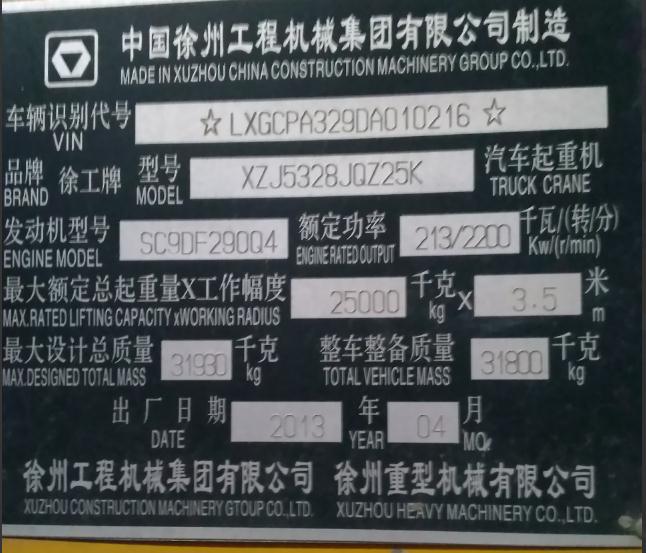 中国徐州工程机械集团有限公司制造
MADE IN XUZHOU CHINA CONSTRUCTION MACHINERY GROUP CO.,LTD.
车辆识别代号 ☆ LXGCPA329DA010216 ☆
VIN
品牌 徐工牌 型号 XZJ5328JQZ25K 汽车起重机
BRAND MODEL TRUCK CRANE
发动机型号 SC9DF290Q4 额定功率 213/2200 千瓦/(转/分)
ENGINE MODEL ENGINE RATED OUTPUT Kw/(r/min)
最大额定总起重量X工作幅度 25000 千克 X 3.5 米
MAX.RATED LIFTING CAPACITY xWORKING RADIUS kg m
最大设计总质量 31930 千克 整车整备质量 31800 千克
MAX.DESIGNED TOTAL MASS kg TOTAL VEHICLE MASS kg
出厂日期 2013 年 04 月
DATE YEAR MO.
徐州工程机械集团有限公司 徐州重型机械有限公司
XUZHOU CONSTRUCTION MACHINERY GTOUP CO.,LTD. XUZHOU HEAVY MACHINERY CO.,LTD.